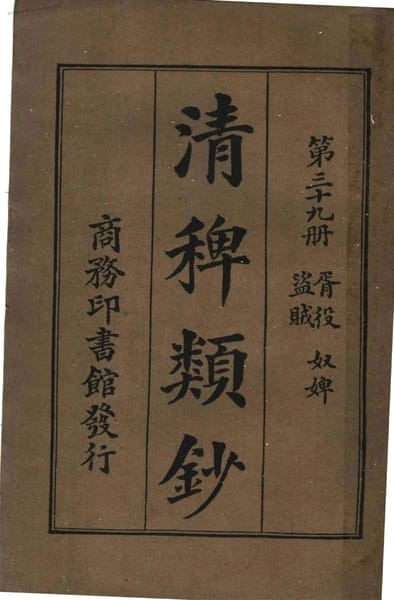 第三十九册 胥役 奴婢
盜賊
清稗類鈔
商務印書館發行